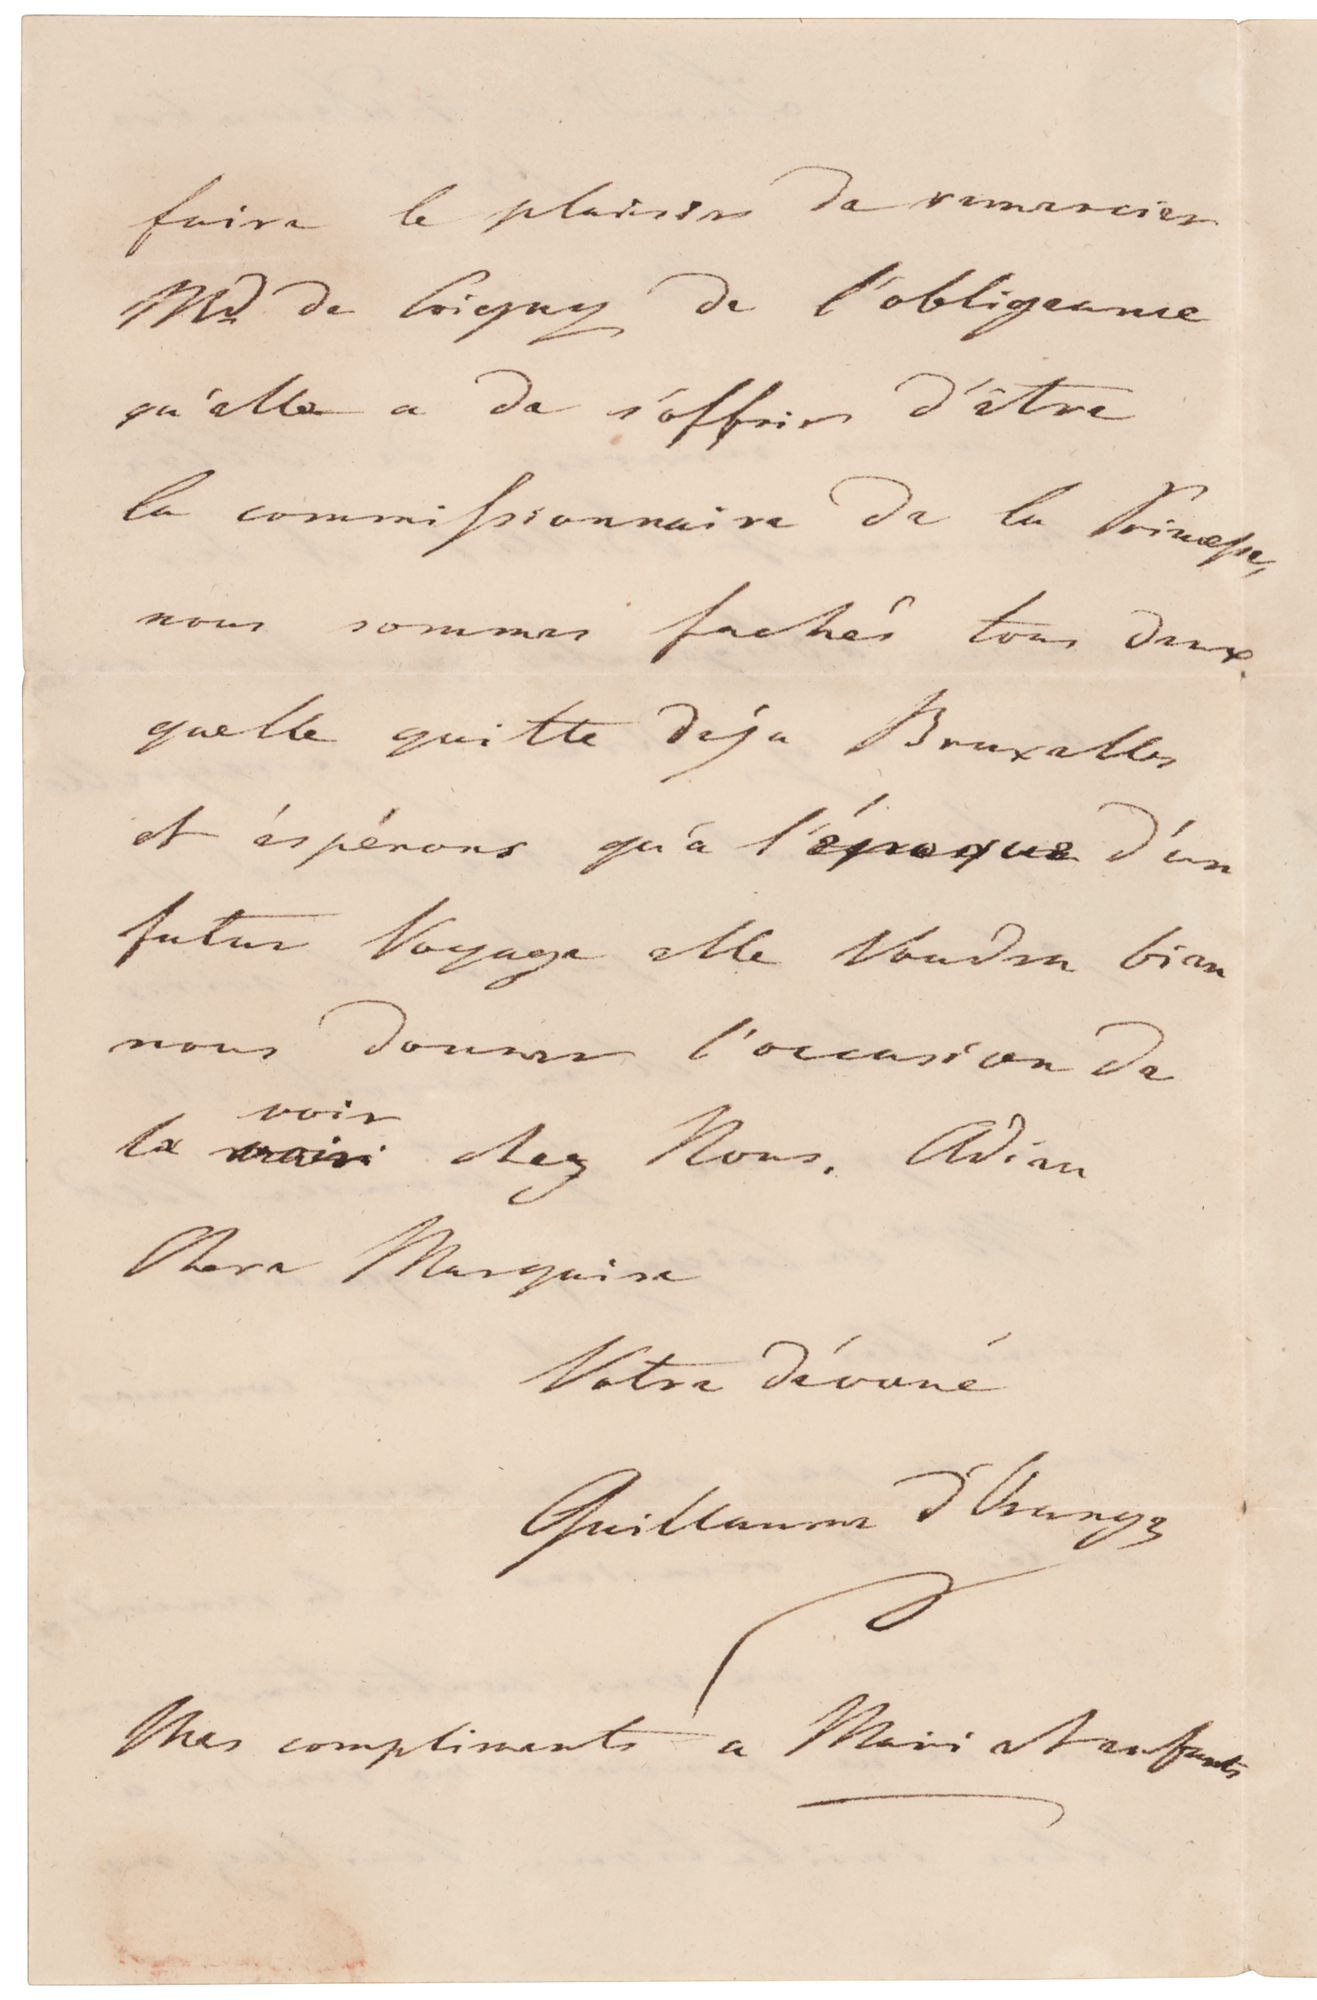 faire le plaisir de remercier
Md. de Crigny de l'obligeance
qu'elle a de s'offrir d'être
la commissionnaire de la Princesse,
nous sommes fachés tous deux
quelle quitte déja Bruxelles
et éspérons qu'à l'époque d'un
futur Voyage elle Voudra bien
nous donner l'occasion de
voir
la chez Nous. Adieu
Chere Marquise
Votre dévoué
Guillaume d'Orange
Mes compliments a Mari et enfants